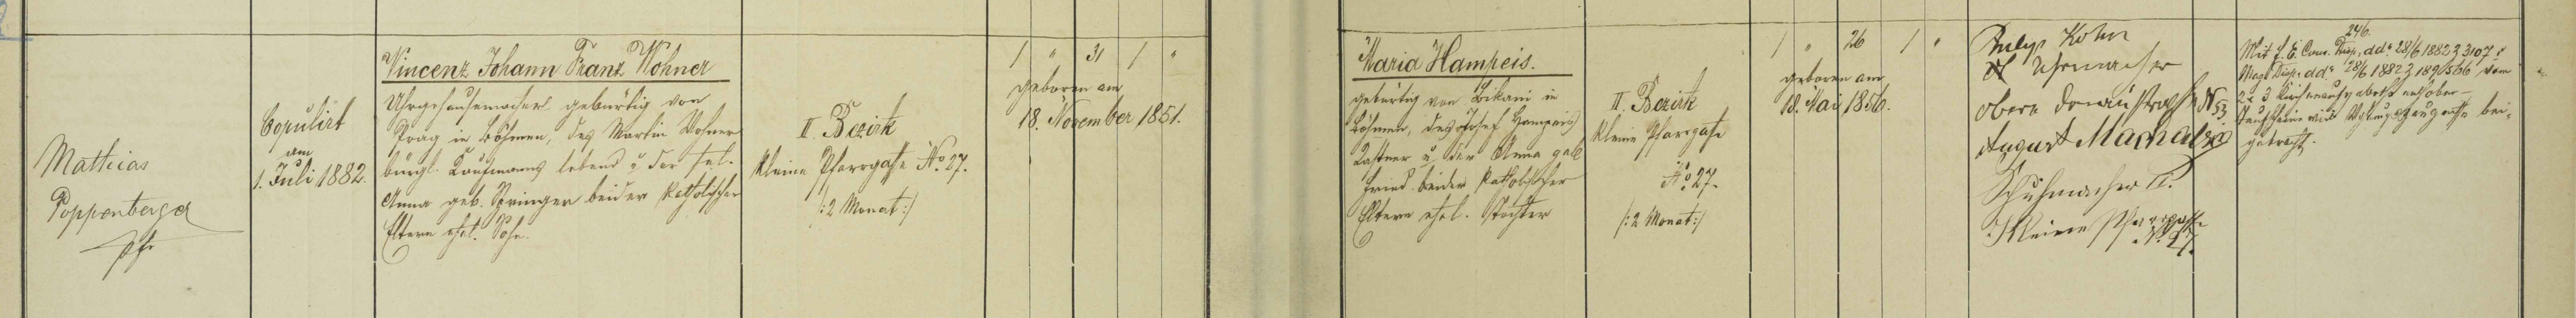 Mathias
Poppenberger
Pfr
Copulirt
am
1. Juli 1882.
Vincenz Johann Franz Wohner
Uhrgehäusemacher gebürtig von
Prag in Böhmen, des Martin Wohner
bürgl. Kaufmanns lebend u. der sel.
Anna geb. Springer beider katholischer
Eltern ehel. Sohn.
II. Bezirk
kleine Pfarrgasse No. 27.
/:2 Monat:/
1 " 31 1 "
geboren am
18. November 1851.
Maria Hampeis.
gebürtig von in
Böhmen, des Josef Hampeis
u. der Anna geb.
Fried beider katholischer
Eltern ehel. Tochter
II. Bezirk
kleine Pfarrgasse
No. 27.
/:2 Monat:/
1 " 26 1 "
geboren am
18. Mai 1856.
Kohn
Uhrmacher
obere Donaustrasse No 53
August
Schuhmacher II.
Kleine Pfarrgasse
No 27.
246.
Mit f. E. Cons. Disp. ddo 28/6 1882 Z 3107 u
Mag. Disp. ddo 28/6 1882 Z vom
2 u 3 Kirchenaufgebothe
Taufscheine und bei-
gebracht.